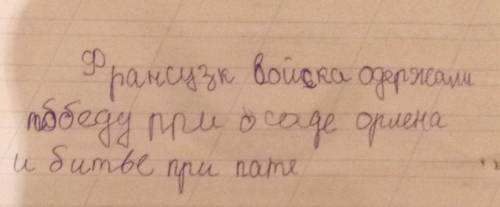 Франсузк войска одержали
победу при осаде орлена
и битве при пате